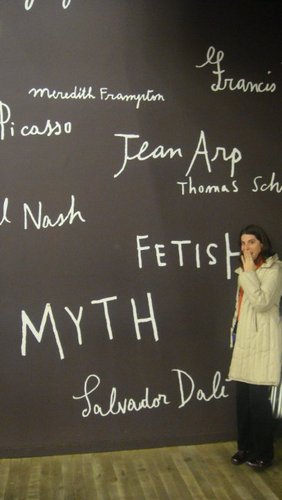 Francis
Meredith Frampton
Picasso
Jean Arp
Thomas Sch
Nash
FETISH
MYTH
Salvador Dalí